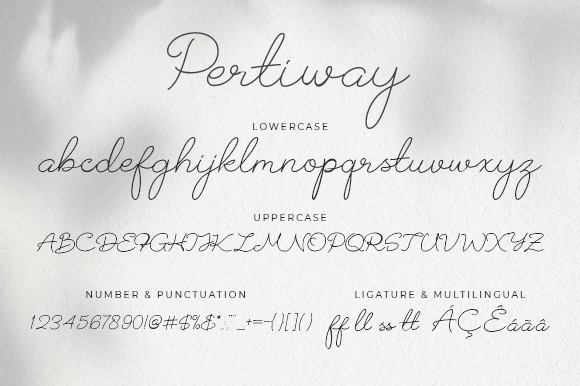 Pertiway
LOWERCASE
abcdefghijklmnopqrstuvwxyz
UPPERCASE
ABCDEFGHIJKLMNOPQRSTUVWXYZ
NUMBER & PUNCTUATION
LIGATURE & MULTILINGUAL
1234567890!@#$%&*:;"_+=-(){}[]()
ff ll ss tt ÁÇÊáãâ